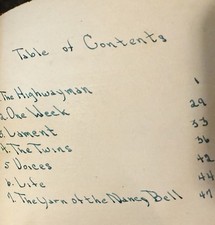 Table of Contents
The Highwayman 1
2. One Week 29
3. Lament 33
4. The Twins 36
5 Voices 42
6. Life 44
7. The Yarn of the Nancy Bell 47